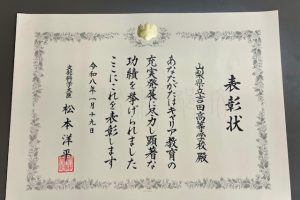 表彰状
山梨県立吉田高等学校 殿
あなたがたはキャリア教育の
充実発展に尽力し顕著な
功績を挙げられました
ここにこれを表彰します
令和八年一月十九日
文部科学大臣 松本洋平